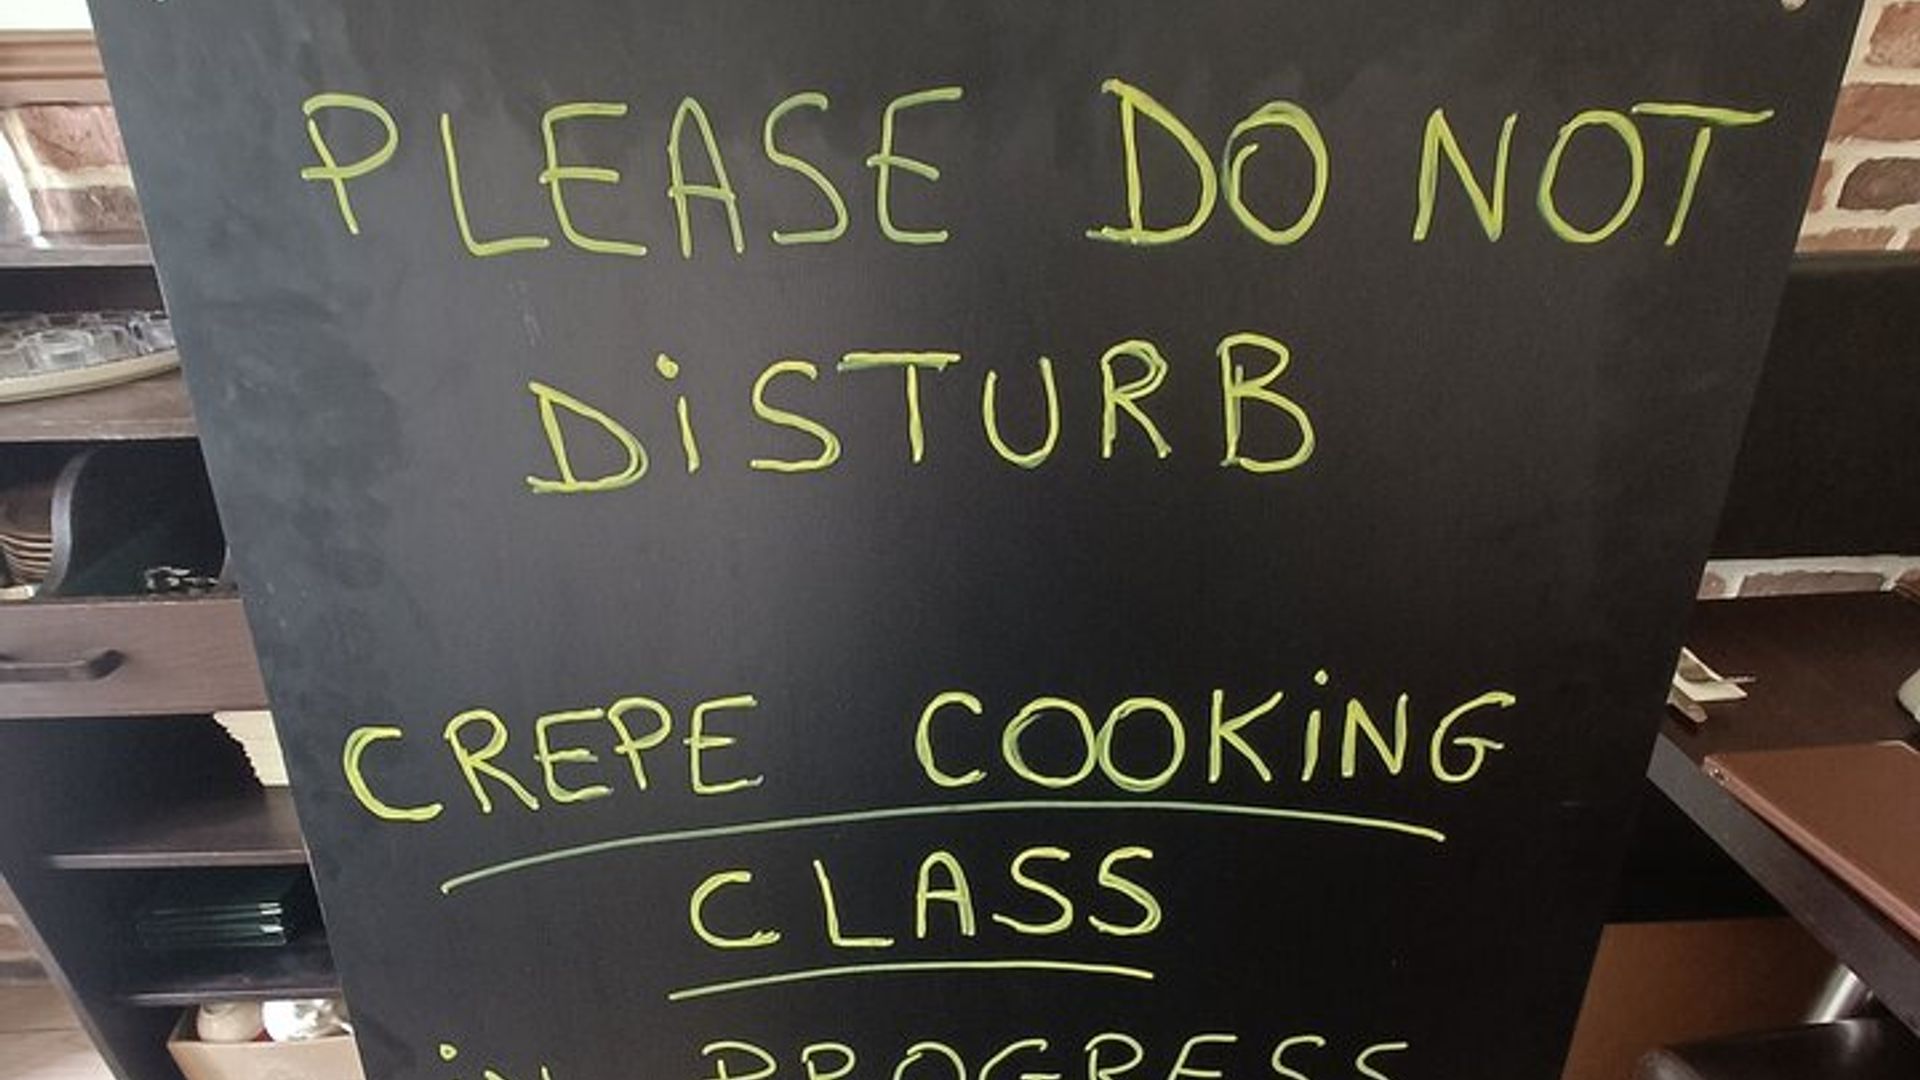 PLEASE DO NOT
DiSTURB
CREPE COOKiNG
CLASS
iN PROGRESS